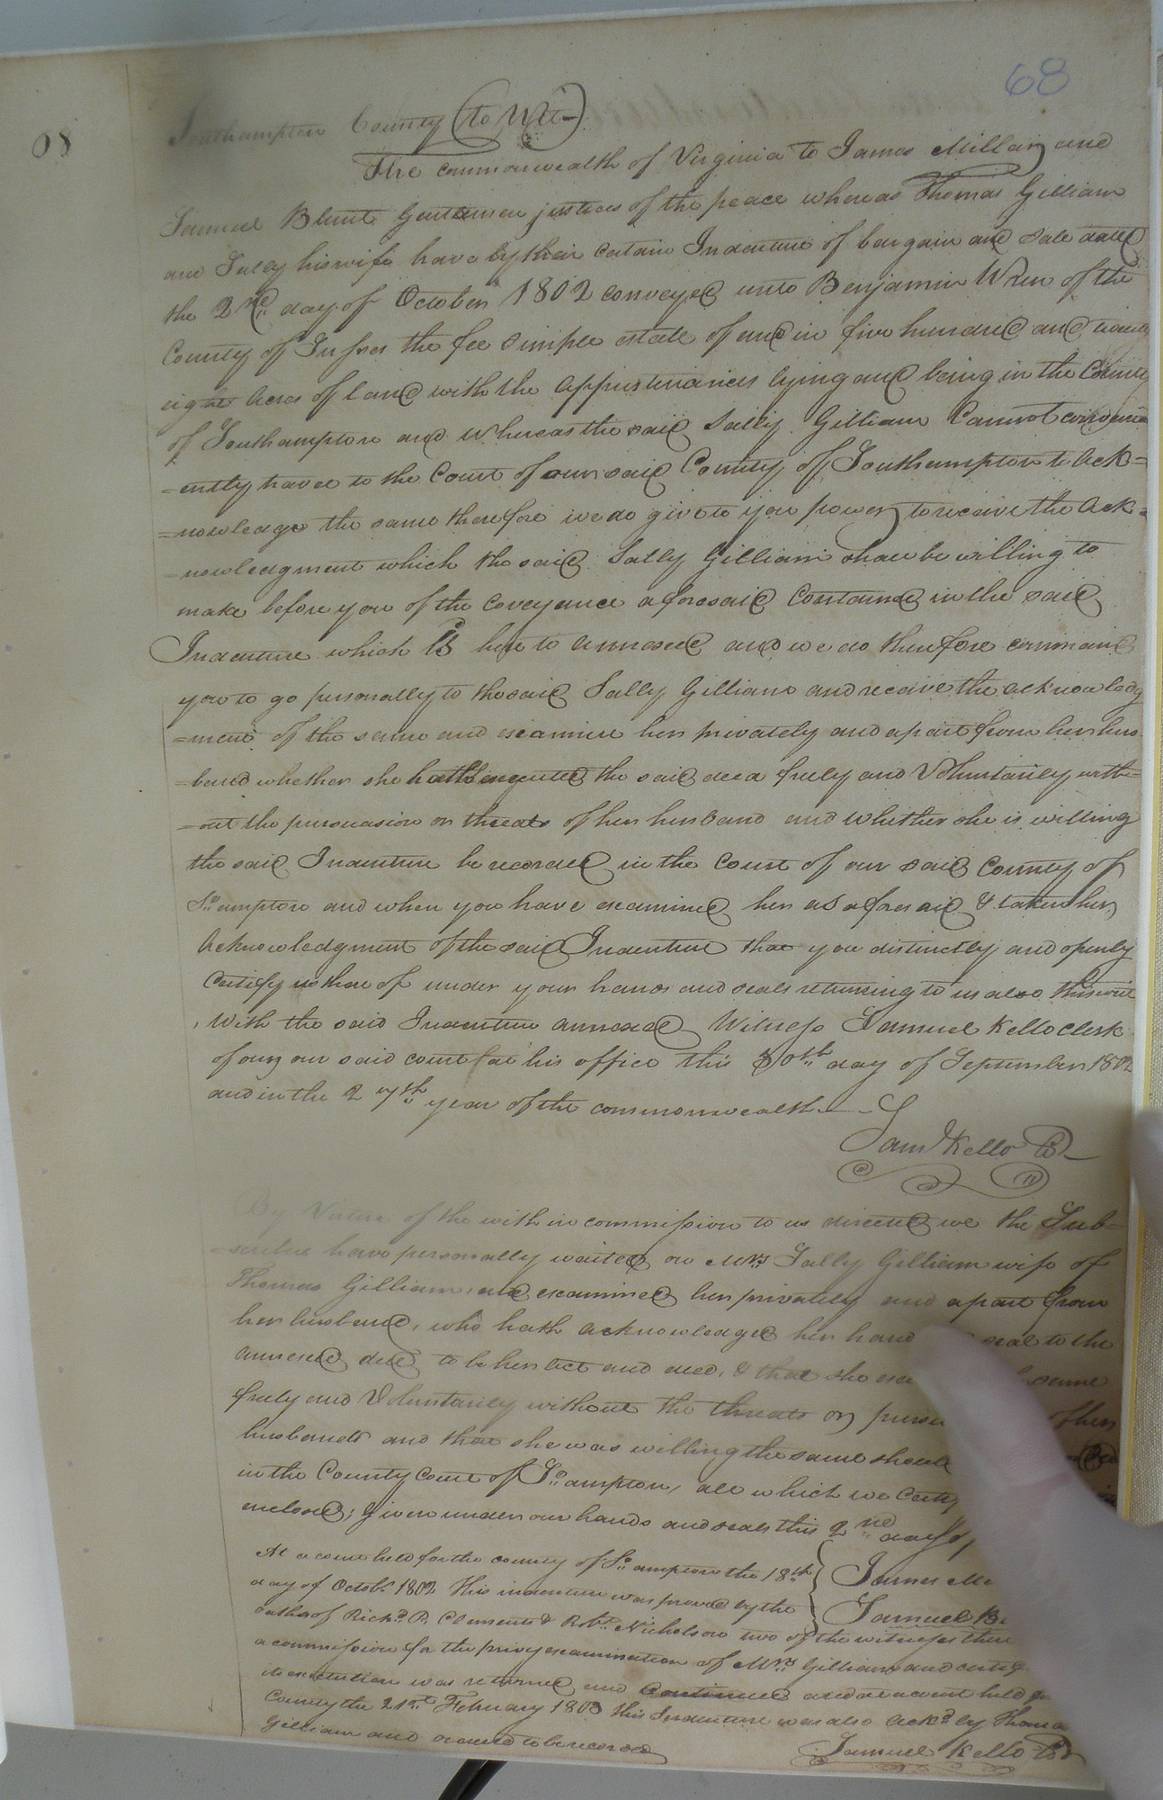 68
Southampton County (to Wit)
The commonwealth of Virginia to James Millar and
Samuel Blunt Gentlemen justices of the peace whereas Thomas Gilliam
and Sally his wife have by their certain Indenture of bargain and Sale dated
the 2nd day of October 1802 conveyed unto Benjamin Wren of the
County of Sussex the fee simple estate of and in five hundred and
eight Acres of Land with the Appurtenances lying and being in the County
of Southampton and whereas the said Sally Gilliam Cannot conveni
=ently travel to the Court of our said County of Southampton to Ack=
=nowledge the same therefore we do give to you power to receive the Ack=
=nowledgment which the said Sally Gilliam shall be willing to
make before you of the coveyance aforesaid Contained in the said
Indenture which is hereto annexed and we do therefore command
you to go personally to the said Sally Gilliam and receive the acknowledg
=ment of the same and examine her privately and apart from her hus
=band whether she hath executed the said deed freely and Voluntarily with=
=out the persuasion or threats of her husband and whether she is willing
the said Indenture be recorded in the Court of our said County of
So. ampton and when you have examined her as aforesaid & taken her
Acknowledgment of the said Indenture that you distinctly and openly
Certify us thereof under your hands and seals returning to us also this writ
with the said Indenture annexed Witness Samuel Kello Clerk
of our said court at his office this 30th day of September 1802
and in the 27th year of the commonwealth
Saml Kello Ck
By Virtue of the within commission to us directed we the Sub=
=scribers have personally waited on Mrs Sally Gilliam wife of
Thomas Gilliam and examined her privately and apart from
her husband, who hath acknowledged her hand seal to the
annexed deed to be her act and deed, & that she same
freely and Voluntarily without the threats or of her
husband and that she was willing the same should
in the County Court of So. ampton, all which we
enclosed; Given under our hands and seals this 2nd day of
At a court held for the county of So. ampton the 18th
day of Octobr 1802 This indenture was proved by the
oaths of Richd. P. Clements & Robt. Nicholson two of the witnesses
James
Samuel
a commission for the privy examination of Mrs Gilliam and
its execution was returned and Continued and at a court held
County the 21st February 1803 this Indenture was also Ackd by
Gilliam and ordered to be recorded
Samuel Kello Ck